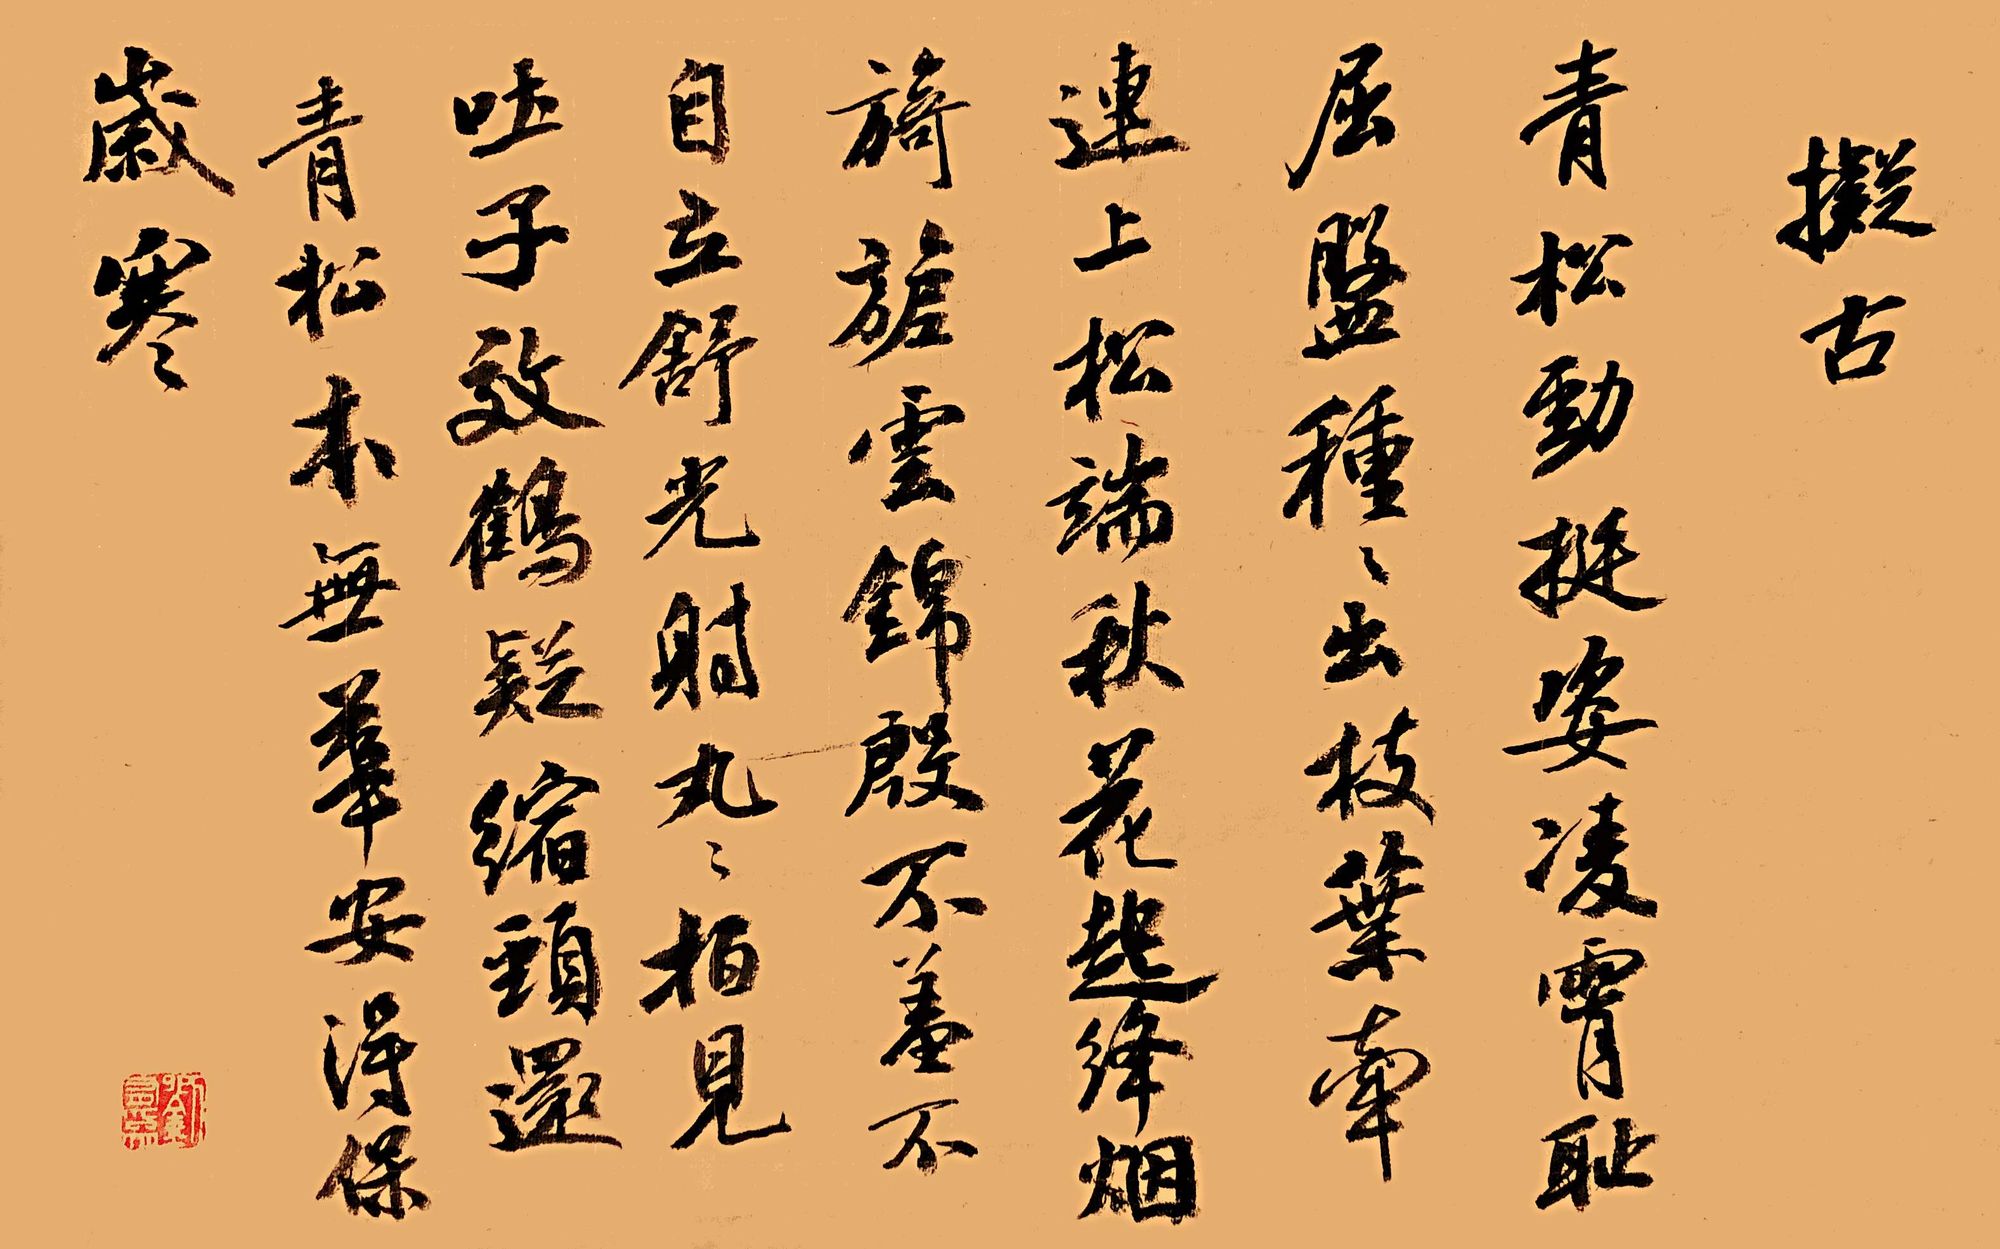 擬古
青松勁挺姿凌霄耻
屈盤種〻出枝葉牽
連上松端秋花起絳烟
旖旎雲錦殷不羞不
自立舒光射丸〻柏見
吐子效鶴疑縮頸還
青松本無華安得保
歲寒